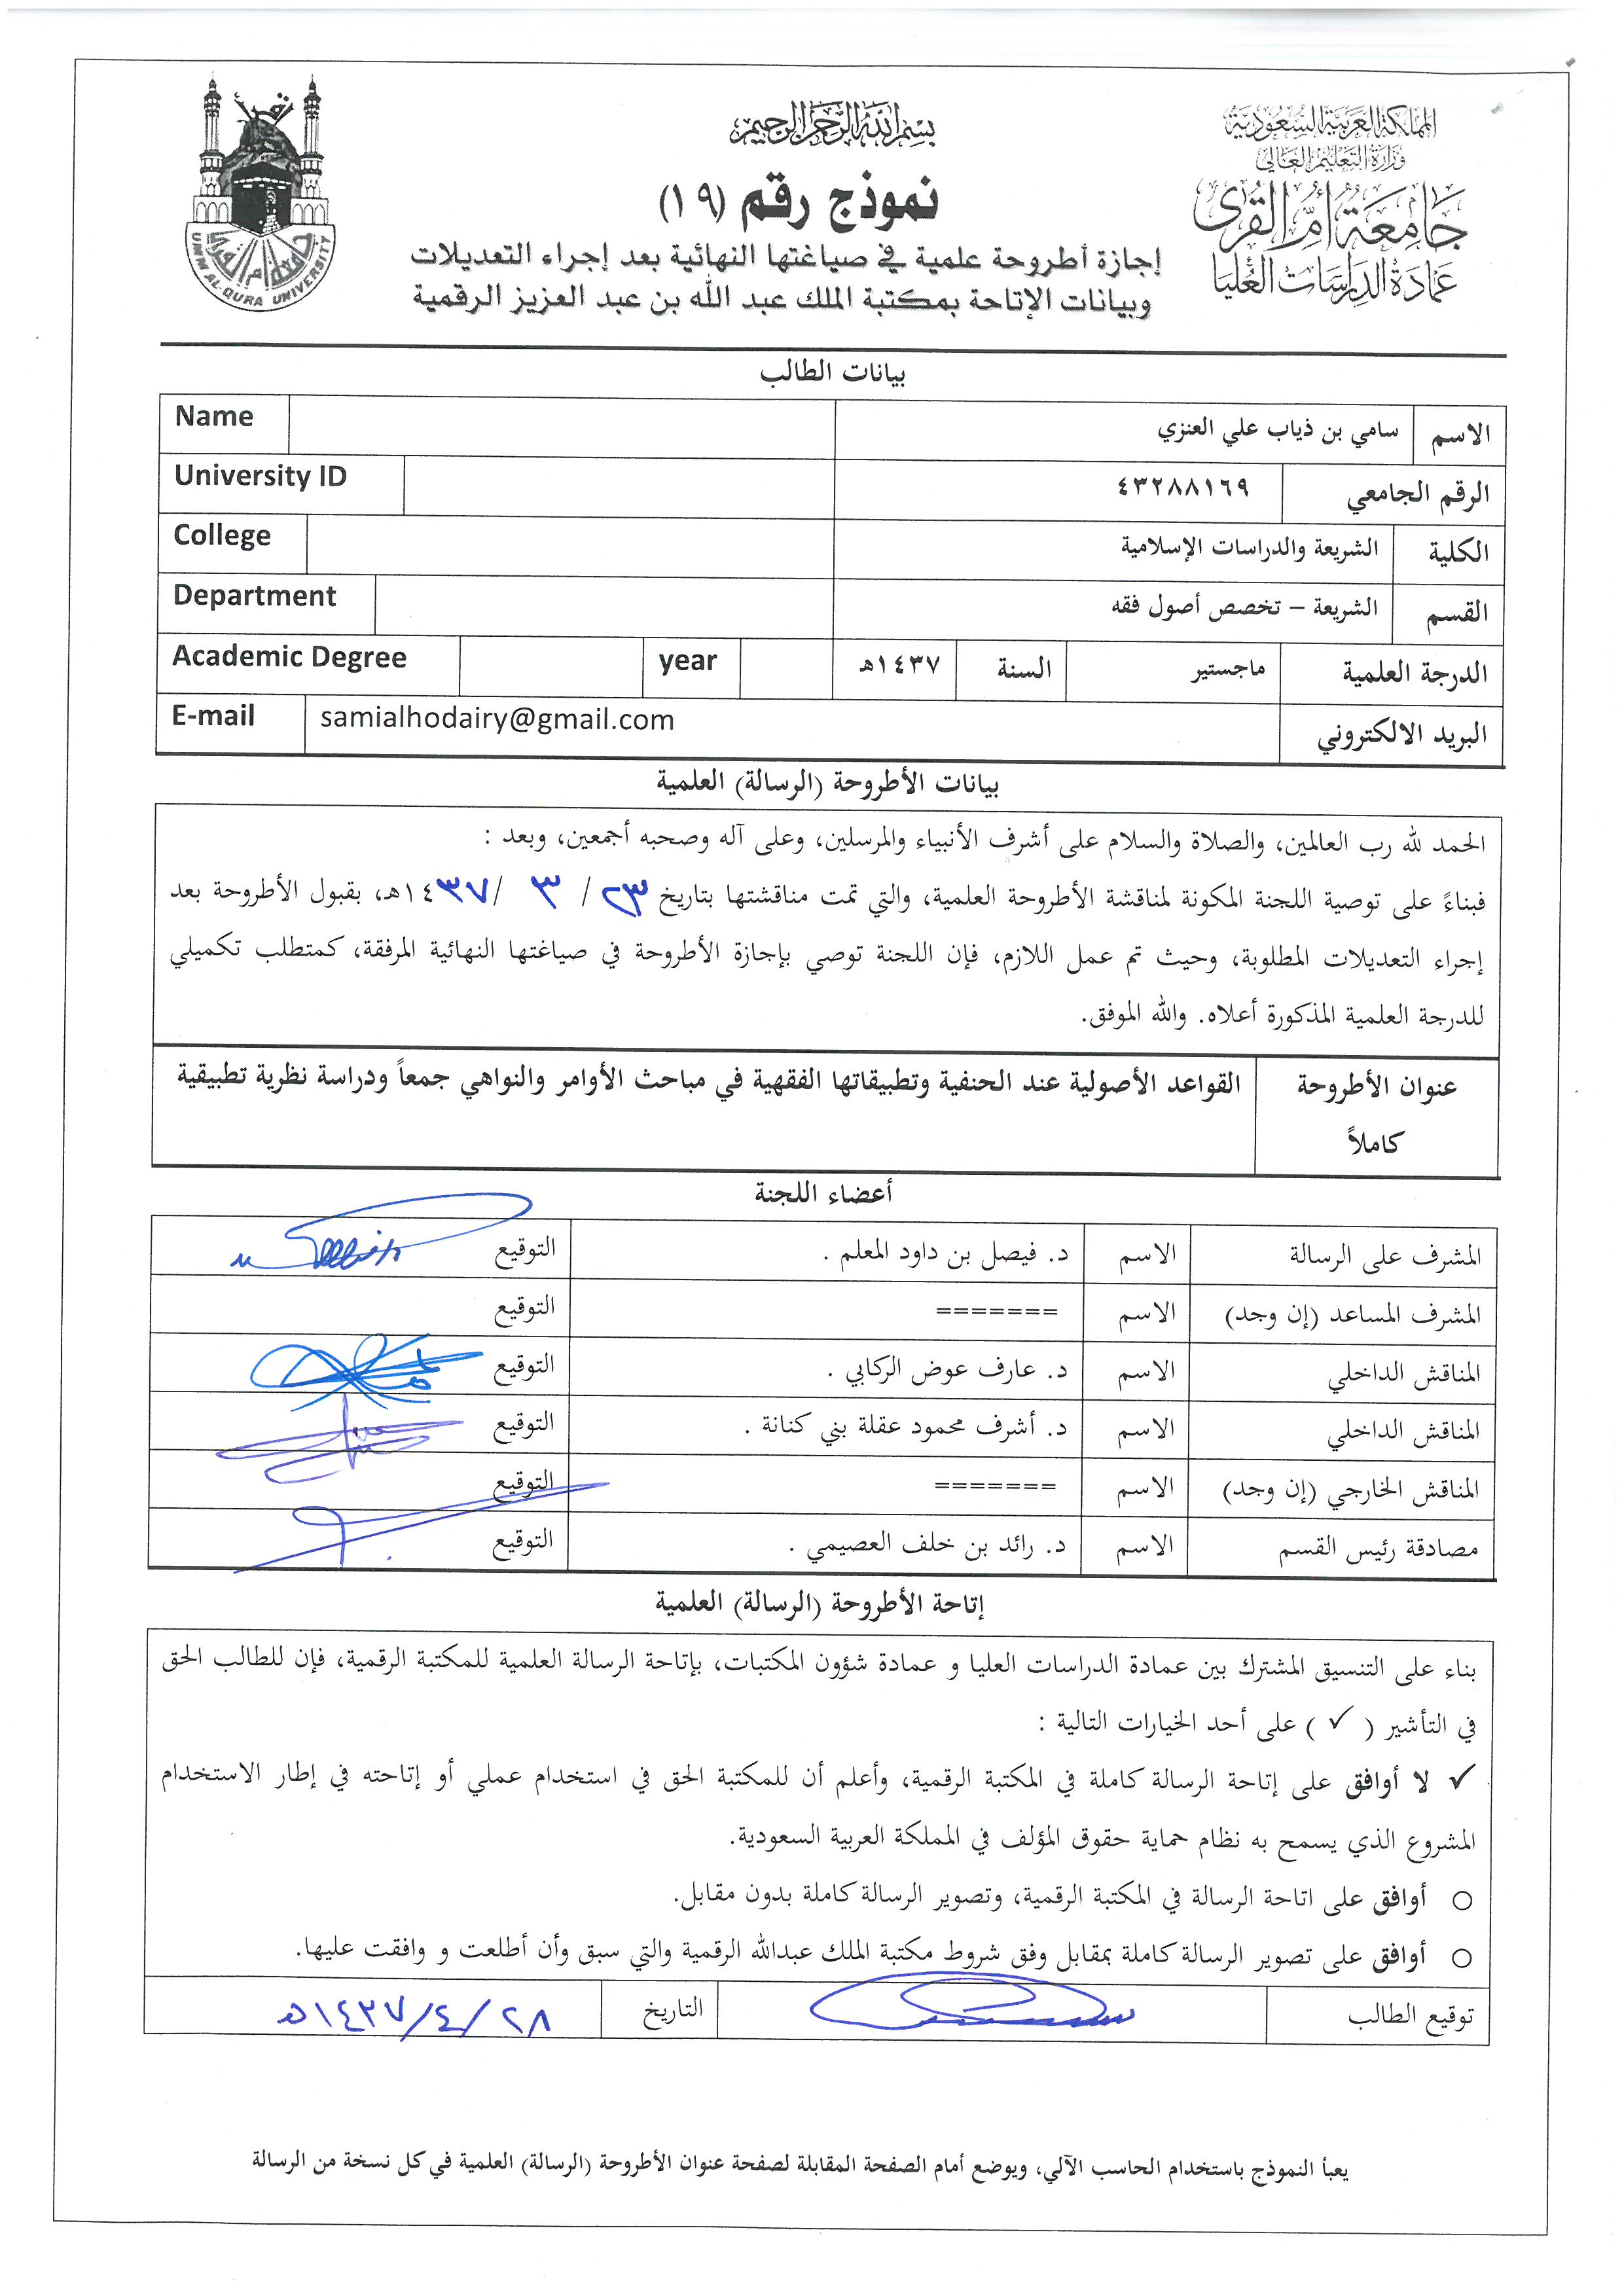 بسم الله الرحمن الرحيم
المملكة العربية السعودية
وزارة التعليم العالي
جامعة أم القرى
عمادة الدراسات العليا
جامعة أم القرى
UMM AL-QURA UNIVERSITY
نموذج رقم (١٩)
إجازة أطروحة علمية في صياغتها النهائية بعد إجراء التعديلات
وبيانات الإتاحة بمكتبة الملك عبد الله بن عبد العزيز الرقمية
بيانات الطالب
الاسم سامي بن ذياب علي العنزي Name
الرقم الجامعي ٤٣٢٨٨١٦٩ University ID
الكلية الشريعة والدراسات الإسلامية College
القسم الشريعة – تخصص أصول فقه Department
الدرجة العلمية ماجستير السنة ١٤٣٧هـ year Academic Degree
البريد الالكتروني samialhodairy@gmail.com E-mail
بيانات الأطروحة (الرسالة) العلمية
الحمد لله رب العالمين، والصلاة والسلام على أشرف الأنبياء والمرسلين، وعلى آله وصحبه أجمعين، وبعد :
فبناءً على توصية اللجنة المكونة لمناقشة الأطروحة العلمية، والتي تمت مناقشتها بتاريخ ٢٣ / ٣ / ١٤٣٧هـ، بقبول الأطروحة بعد
إجراء التعديلات المطلوبة، وحيث تم عمل اللازم، فإن اللجنة توصي بإجازة الأطروحة في صياغتها النهائية المرفقة، كمتطلب تكميلي
للدرجة العلمية المذكورة أعلاه. والله الموفق.
عنوان الأطروحة القواعد الأصولية عند الحنفية وتطبيقاتها الفقهية في مباحث الأوامر والنواهي جمعاً ودراسة نظرية تطبيقية
كاملاً
أعضاء اللجنة
المشرف على الرسالة الاسم د. فيصل بن داود المعلم . التوقيع
المشرف المساعد (إن وجد) الاسم ======= التوقيع
المناقش الداخلي الاسم د. عارف عوض الركابي . التوقيع
المناقش الداخلي الاسم د. أشرف محمود عقلة بني كنانة . التوقيع
المناقش الخارجي (إن وجد) الاسم ======= التوقيع
مصادقة رئيس القسم الاسم د. رائد بن خلف العصيمي . التوقيع
إتاحة الأطروحة (الرسالة) العلمية
بناء على التنسيق المشترك بين عمادة الدراسات العليا و عمادة شؤون المكتبات، بإتاحة الرسالة العلمية للمكتبة الرقمية، فإن للطالب الحق
في التأشير ( ✓ ) على أحد الخيارات التالية :
✓ لا أوافق على إتاحة الرسالة كاملة في المكتبة الرقمية، وأعلم أن للمكتبة الحق في استخدام عملي أو إتاحته في إطار الاستخدام
المشروع الذي يسمح به نظام حماية حقوق المؤلف في المملكة العربية السعودية.
○ أوافق على اتاحة الرسالة في المكتبة الرقمية، وتصوير الرسالة كاملة بدون مقابل.
○ أوافق على تصوير الرسالة كاملة بمقابل وفق شروط مكتبة الملك عبدالله الرقمية والتي سبق وأن أطلعت و وافقت عليها.
توقيع الطالب التاريخ ٢٨/٤/١٤٣٧هـ
يعبأ النموذج باستخدام الحاسب الآلي، ويوضع أمام الصفحة المقابلة لصفحة عنوان الأطروحة (الرسالة) العلمية في كل نسخة من الرسالة